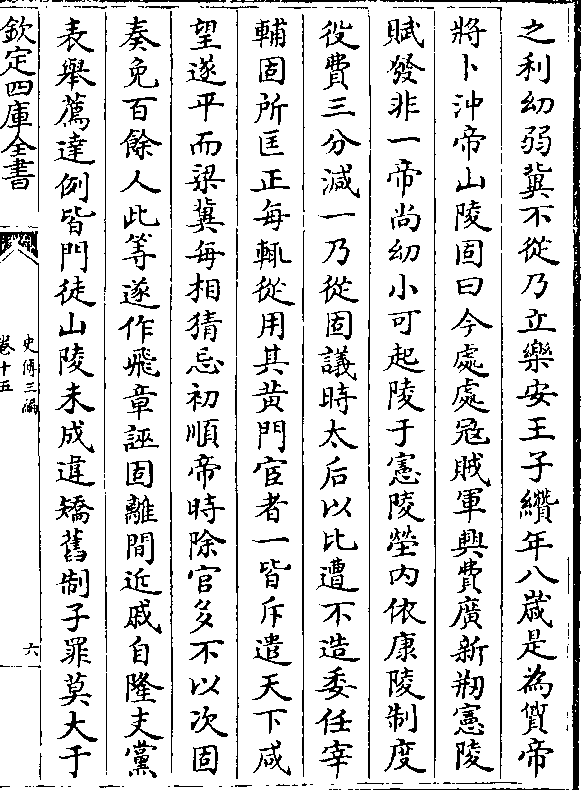 之利幼弱冀不從乃立樂安王子纘年八歲是為質帝
將卜沖帝山陵固曰今處處寇賊軍興費廣新剏憲陵
賦發非一帝尚幼小可起陵于憲陵塋内依康陵制度
役費三分減一乃從固議時太后以比遭不造委任宰
輔固所匡正每輒從用其黄門宦者一皆斥遣天下咸
望遂平而梁冀每相猜忌初順帝時除官多不以次固
奏免百餘人此等遂作飛章誣固離間近戚自隆支黨
表舉薦達例皆門徒山陵未成違矯舊制子罪莫大于
欽定四庫全書
史傳三編
卷十五
六